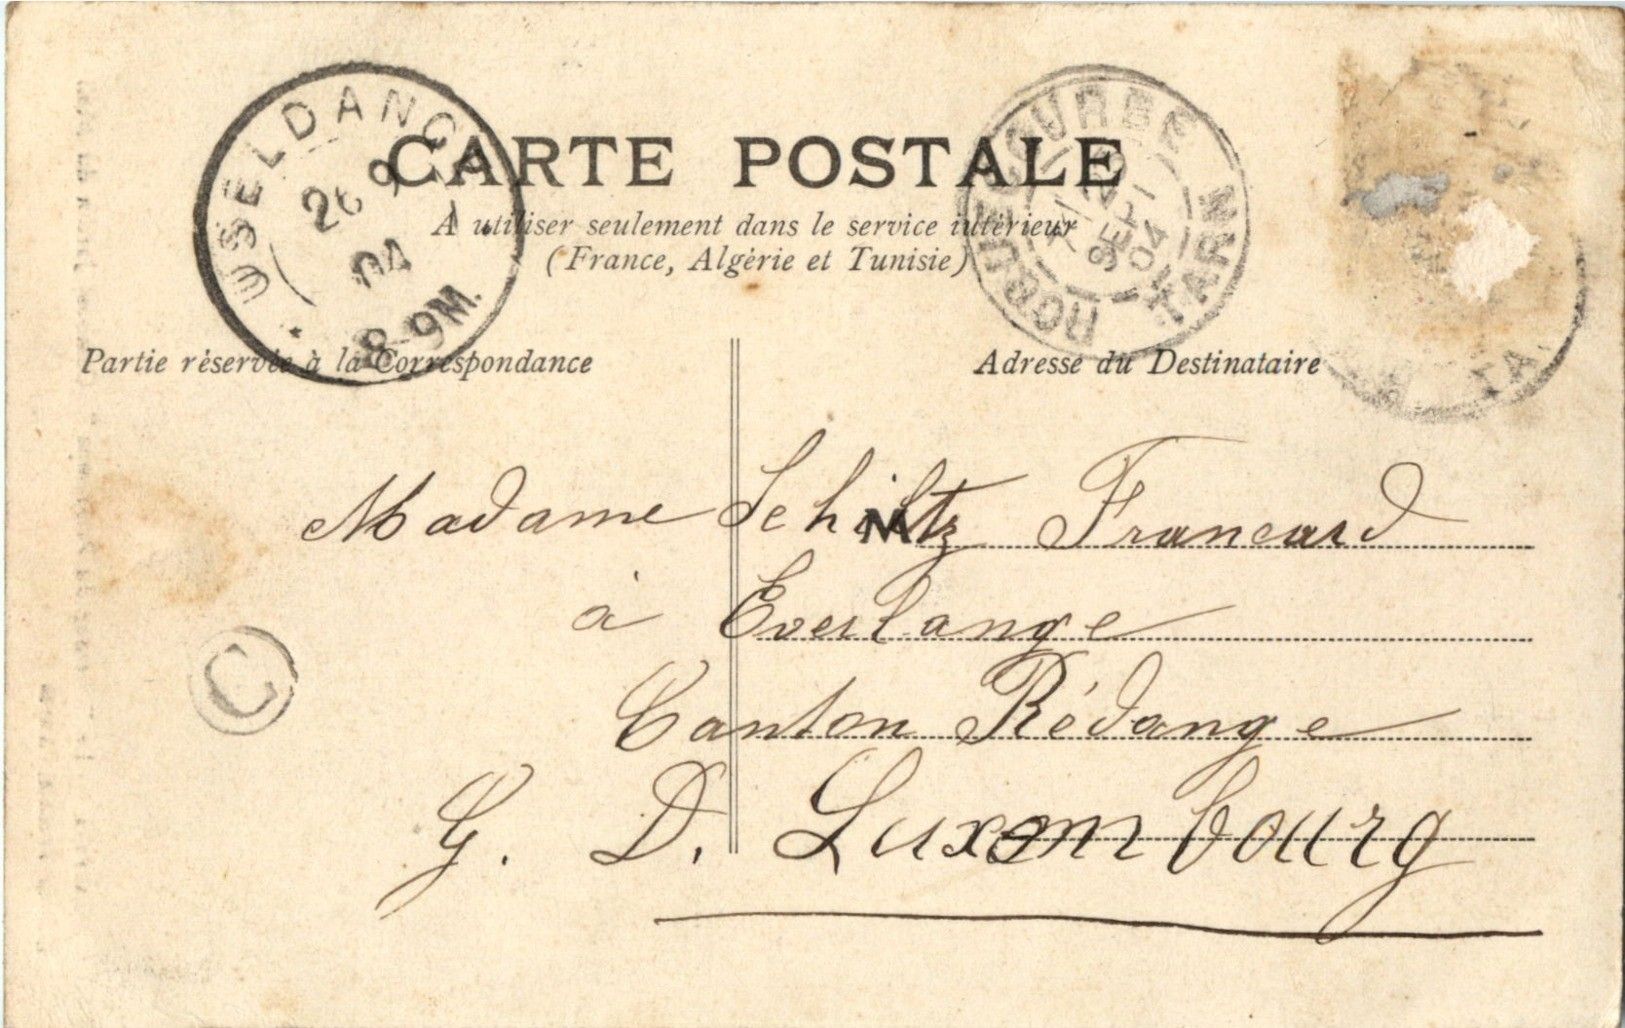 USELDANGE
26 9
04
8-9M.
ROQUECOURBE
TARN
SEPT
04
CARTE POSTALE
A utiliser seulement dans le service intérieur
(France, Algérie et Tunisie)
Partie réservée à la Correspondance
Adresse du Destinataire
TA
Madame Schiltz Francard
à Everlange
Canton Rédange
G. D. Luxembourg
C